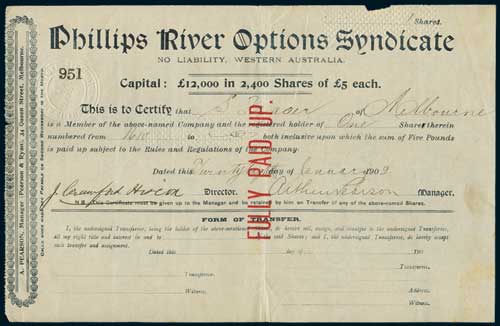 Shares.
Phillips River Options Syndicate
NO LIABILITY, WESTERN AUSTRALIA.
951
Capital: £12,000 in 2,400 Shares of £5 each.
This is to Certify that S. of Melbourne
is a Member of the above-named Company and the registered holder of One Shares therein
numbered from to both inclusive upon which the sum of Five Pounds
is paid up subject to the Rules and Regulations of the Company.
Dated this day of January 1903
J. Crawford Director. Arthur Pearson Manager.
N.B. This Certificate must be given up to the Manager and be retained by him on Transfer of any of the above-named Shares.
FULLY PAID UP.
FORM OF TRANSFER.
I, the undersigned Transferor, being the holder of the above-mentioned do hereby sell, assign, and transfer to the undersigned Transferee,
all my right title and interest in and to said Shares; and I, the undersigned Transferee, do hereby accept
such transfer and assignment.
Dated this day of 190
Transferor. Transferee.
Witness. Address.
Witness.
A. PEARSON, Manager (Pearson & Ryan), 34 Queen Street, Melbourne.